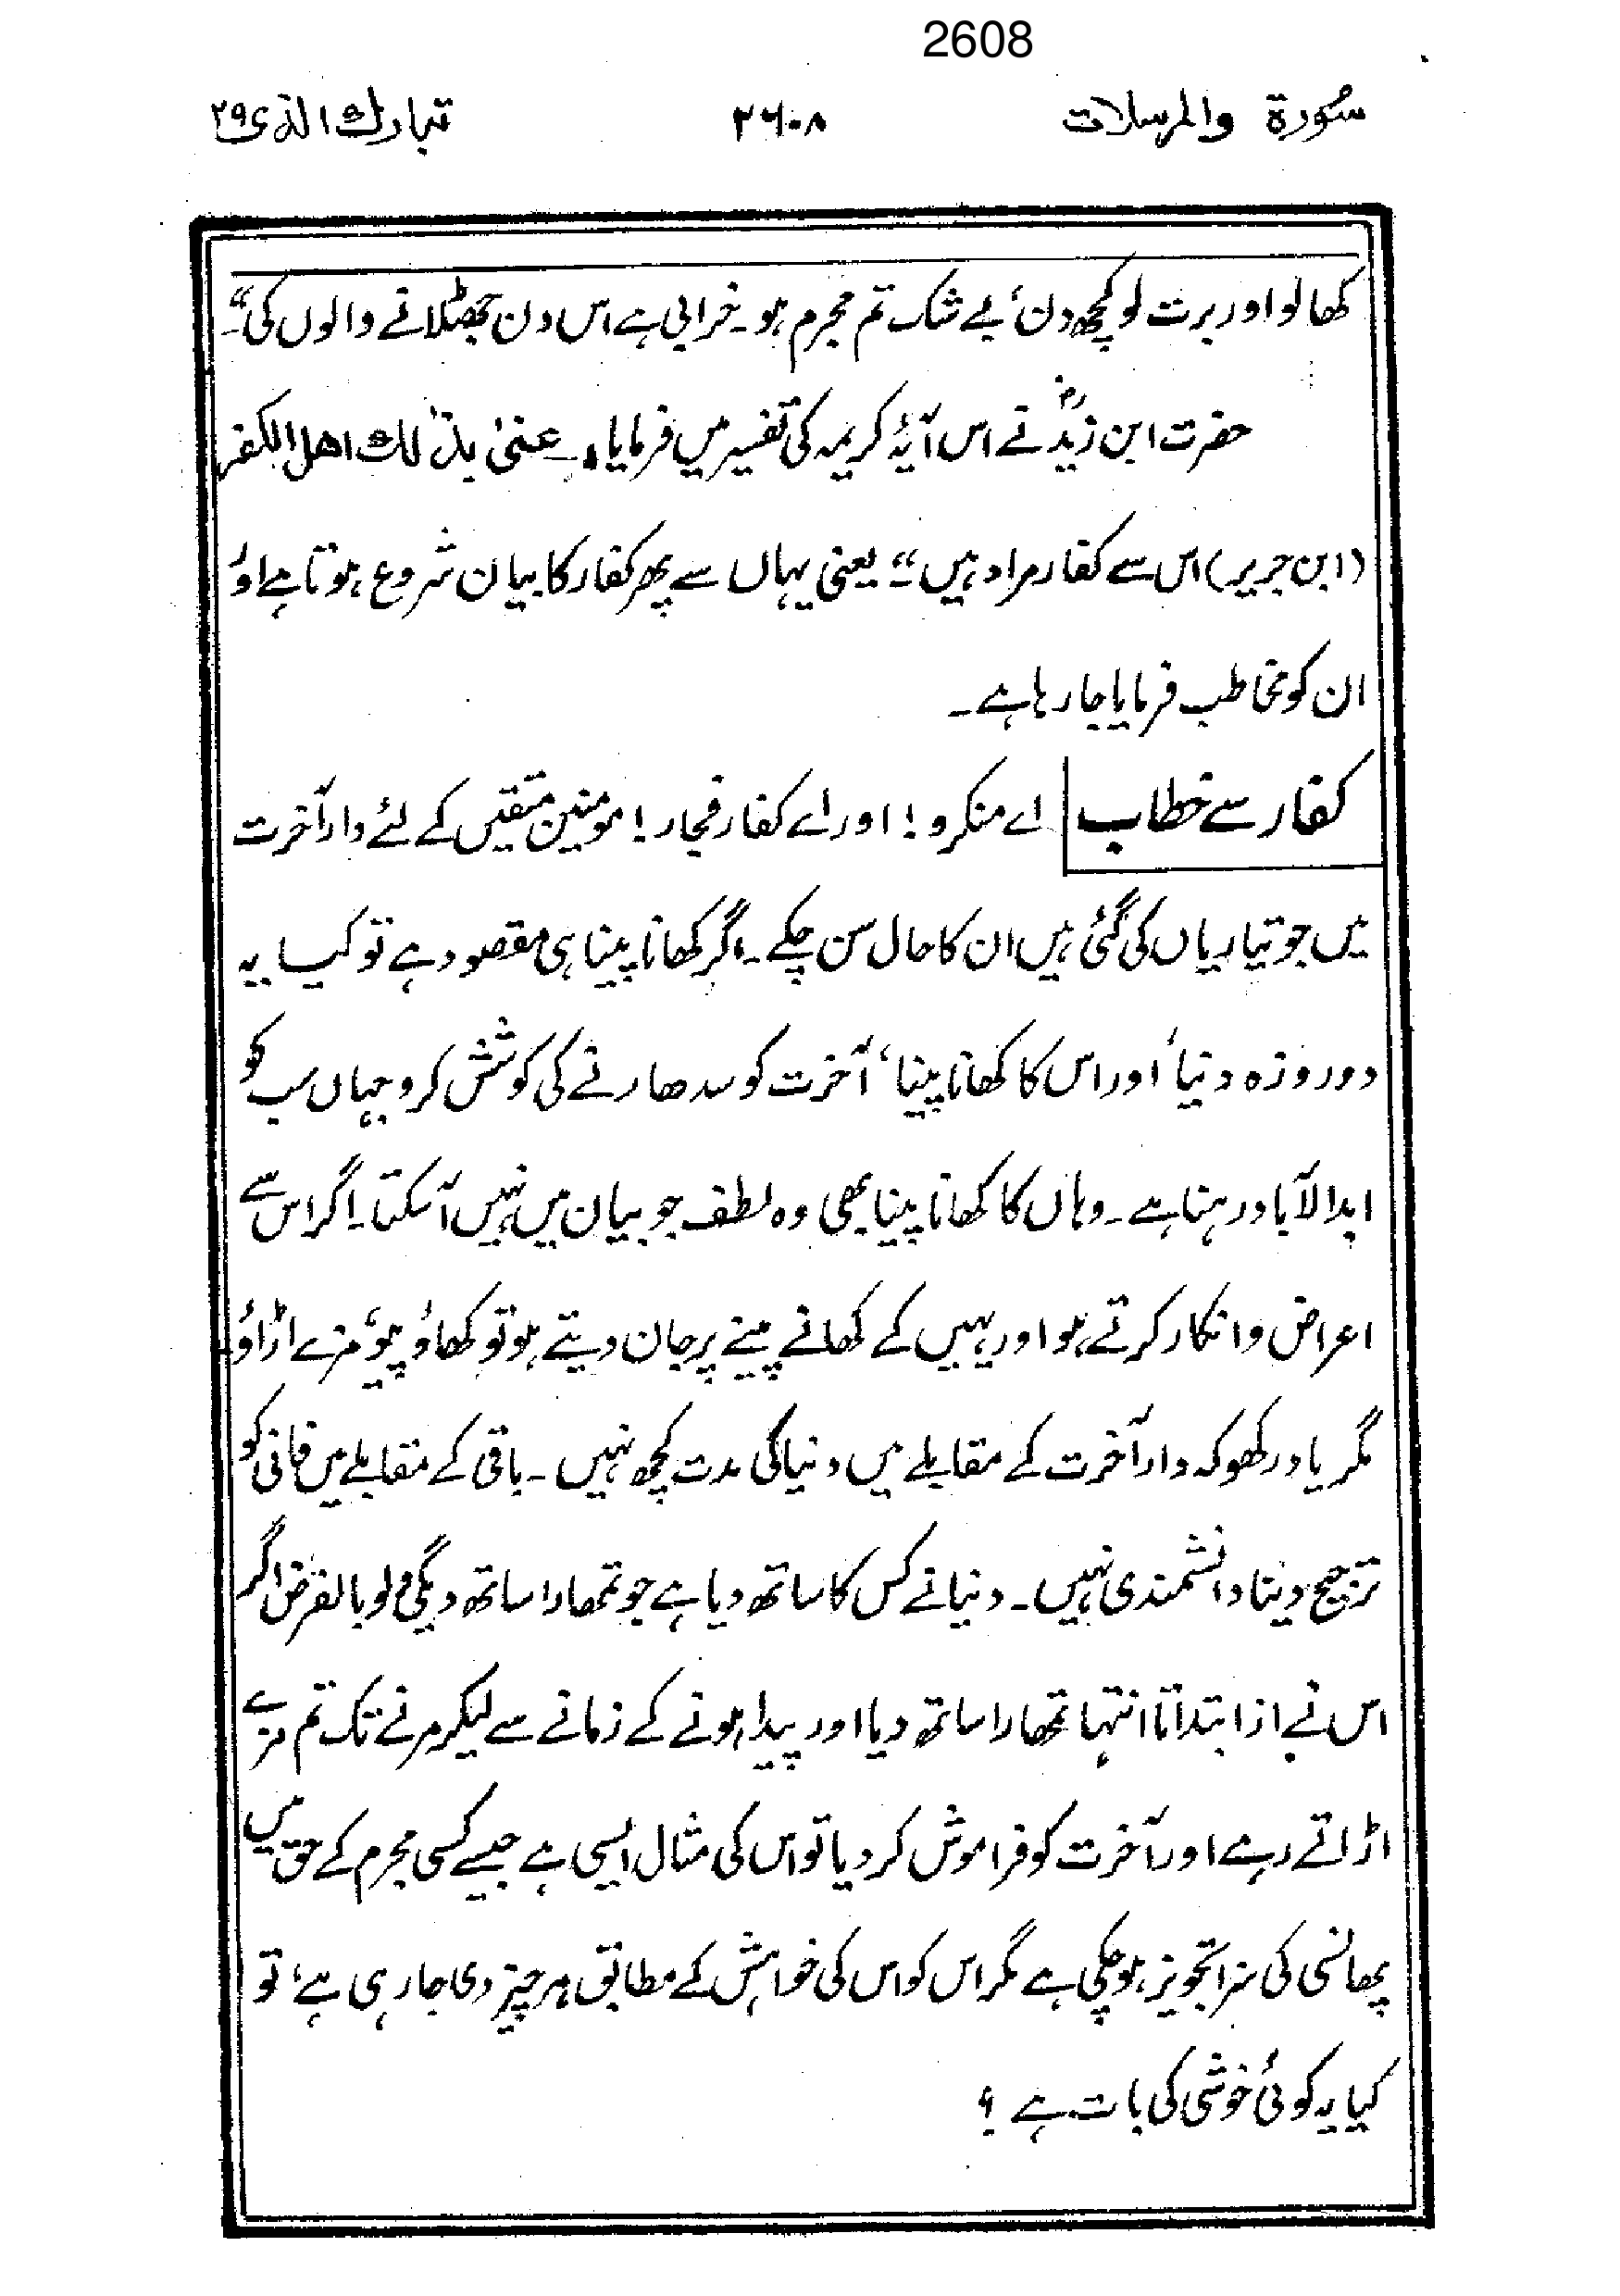 2608
سُورة والمرسلات ۲۶۰۸ تبارك الذى ۲۹
کھالو اور برت لو کچھ دن، بے شک تم مجرم ہو۔ خرابی ہے اس دن جھٹلانے والوں کی“۔
حضرت ابن زیدؒ نے اس آیۂ کریمہ کی تفسیر میں فرمایا۔ عنیٰ بذٰلك اهل الكفر
(ابن جریر) اس سے کفار مراد ہیں“۔ یعنی یہاں سے پھر کفار کا بیان شروع ہوتا ہے اور
ان کو مخاطب فرمایا جا رہا ہے۔
کفار سے خطاب اے منکرو! اور اے کفار فجار! مومنین متقیں کے لئے دار آخرت
میں جو تیاریاں کی گئی ہیں ان کا حال سن چکے۔ اگر کھانا پینا ہی مقصود ہے تو کیا یہ
دو روزہ دنیا، اور اس کا کھانا پینا، آخرت کو سدھارنے کی کوشش کرو جہاں سب کو
ابدالآباد رہنا ہے۔ وہاں کا کھانا پینا بھی وہ لطف جو بیان میں نہیں آسکتا۔ اگر اس سے
اعراض وانکار کرتے ہو اور یہیں کے کھانے پینے پر جان دیتے ہو تو کھاؤ پیو، مزے اڑاؤ
مگر یاد رکھو کہ دار آخرت کے مقابلے میں دنیا کی مدت کچھ نہیں۔ باقی کے مقابلے میں فانی کو
ترجیح دینا دانشمندی نہیں۔ دنیا نے کس کا ساتھ دیا ہے جو تمھارا ساتھ دیگی لو بالفرض اگر
اس نے از ابتدا تا انتہا تمھارا ساتھ دیا اور پیدا ہونے کے زمانے سے لیکر مرنے تک تم مزے
اڑاتے رہے اور آخرت کو فراموش کردیا تو اس کی مثال ایسی ہے جیسے کسی مجرم کے حق میں
پھانسی کی سزا تجویز ہوچکی ہے مگر اس کو اس کی خواہش کے مطابق ہر چیز دی جا رہی ہے، تو
کیا یہ کوئی خوشی کی بات ہے؟